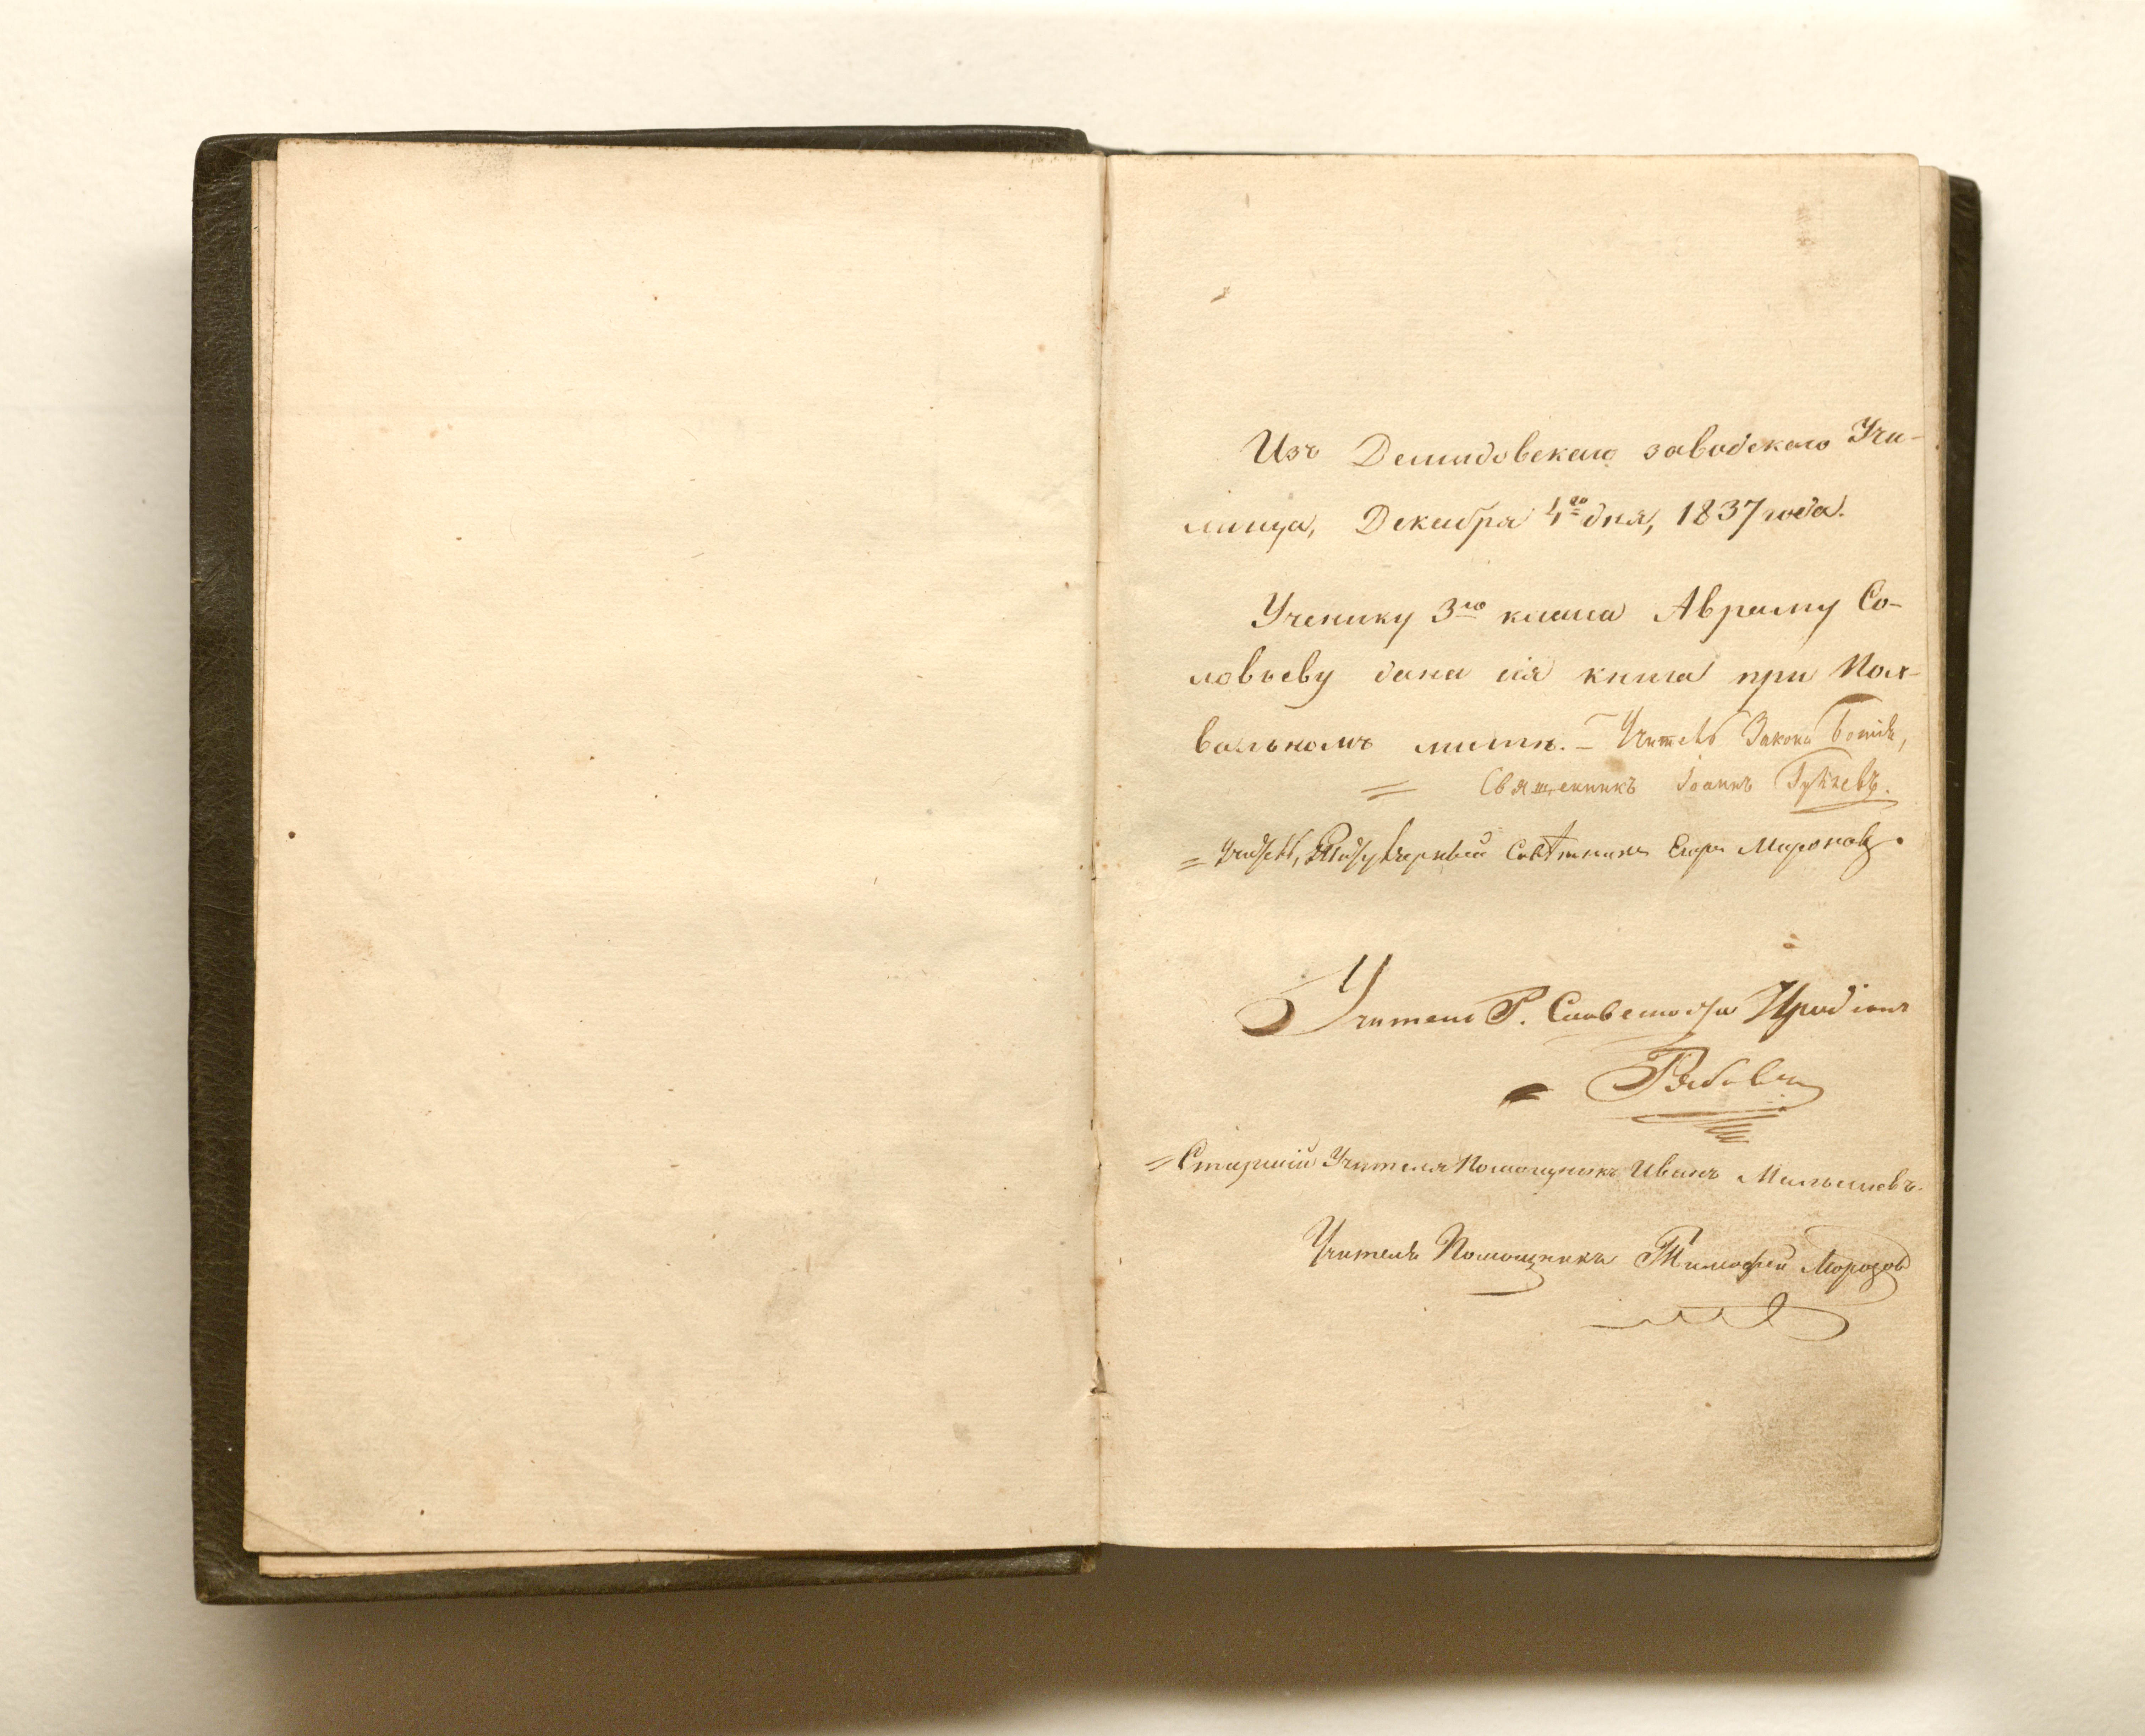 Изъ Демидовскаго заводскаго Учи-
лища, Декабря 4го дня, 1837 года.
Ученику 3го класса Авраму Со-
ловьеву дана сія книга при Пох-
вальномъ листѣ. – Учитель Закона Божія,
= Священникъ Іоаннъ
= Учитель, Титулярный Совѣтникъ Егоръ Мироновъ.
Учитель Р. Словесности Иродіонъ
Рябовъ
= Старшій Учителя Помощникъ Иванъ Мальшевъ.
Учителя Помощникъ Тимофей Морозов